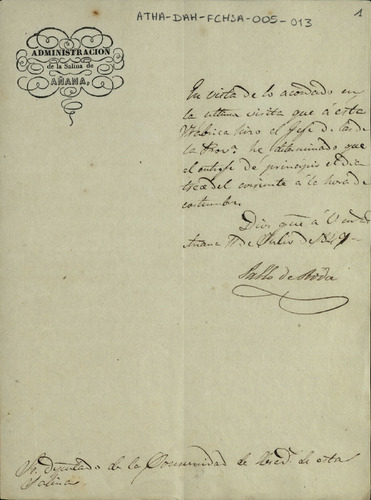 ATHA-DAH-FCHSA-005-013
1
ADMINISTRACION
de la Salina de
AÑANA,
En vista de lo acordado en
la ultima visita que á esta
Fábrica hizo el Jefe de las de
la Prov.ª he determinado que
el entroje dé principio el dia
trece del corriente á la hora de
costumbre.
Dios gue á V. m.s a.s
Añana 11 de Julio de 1849
Pablo de Roda
Sr. Diputado de la Comunidad de Hered.s de esta
Salina